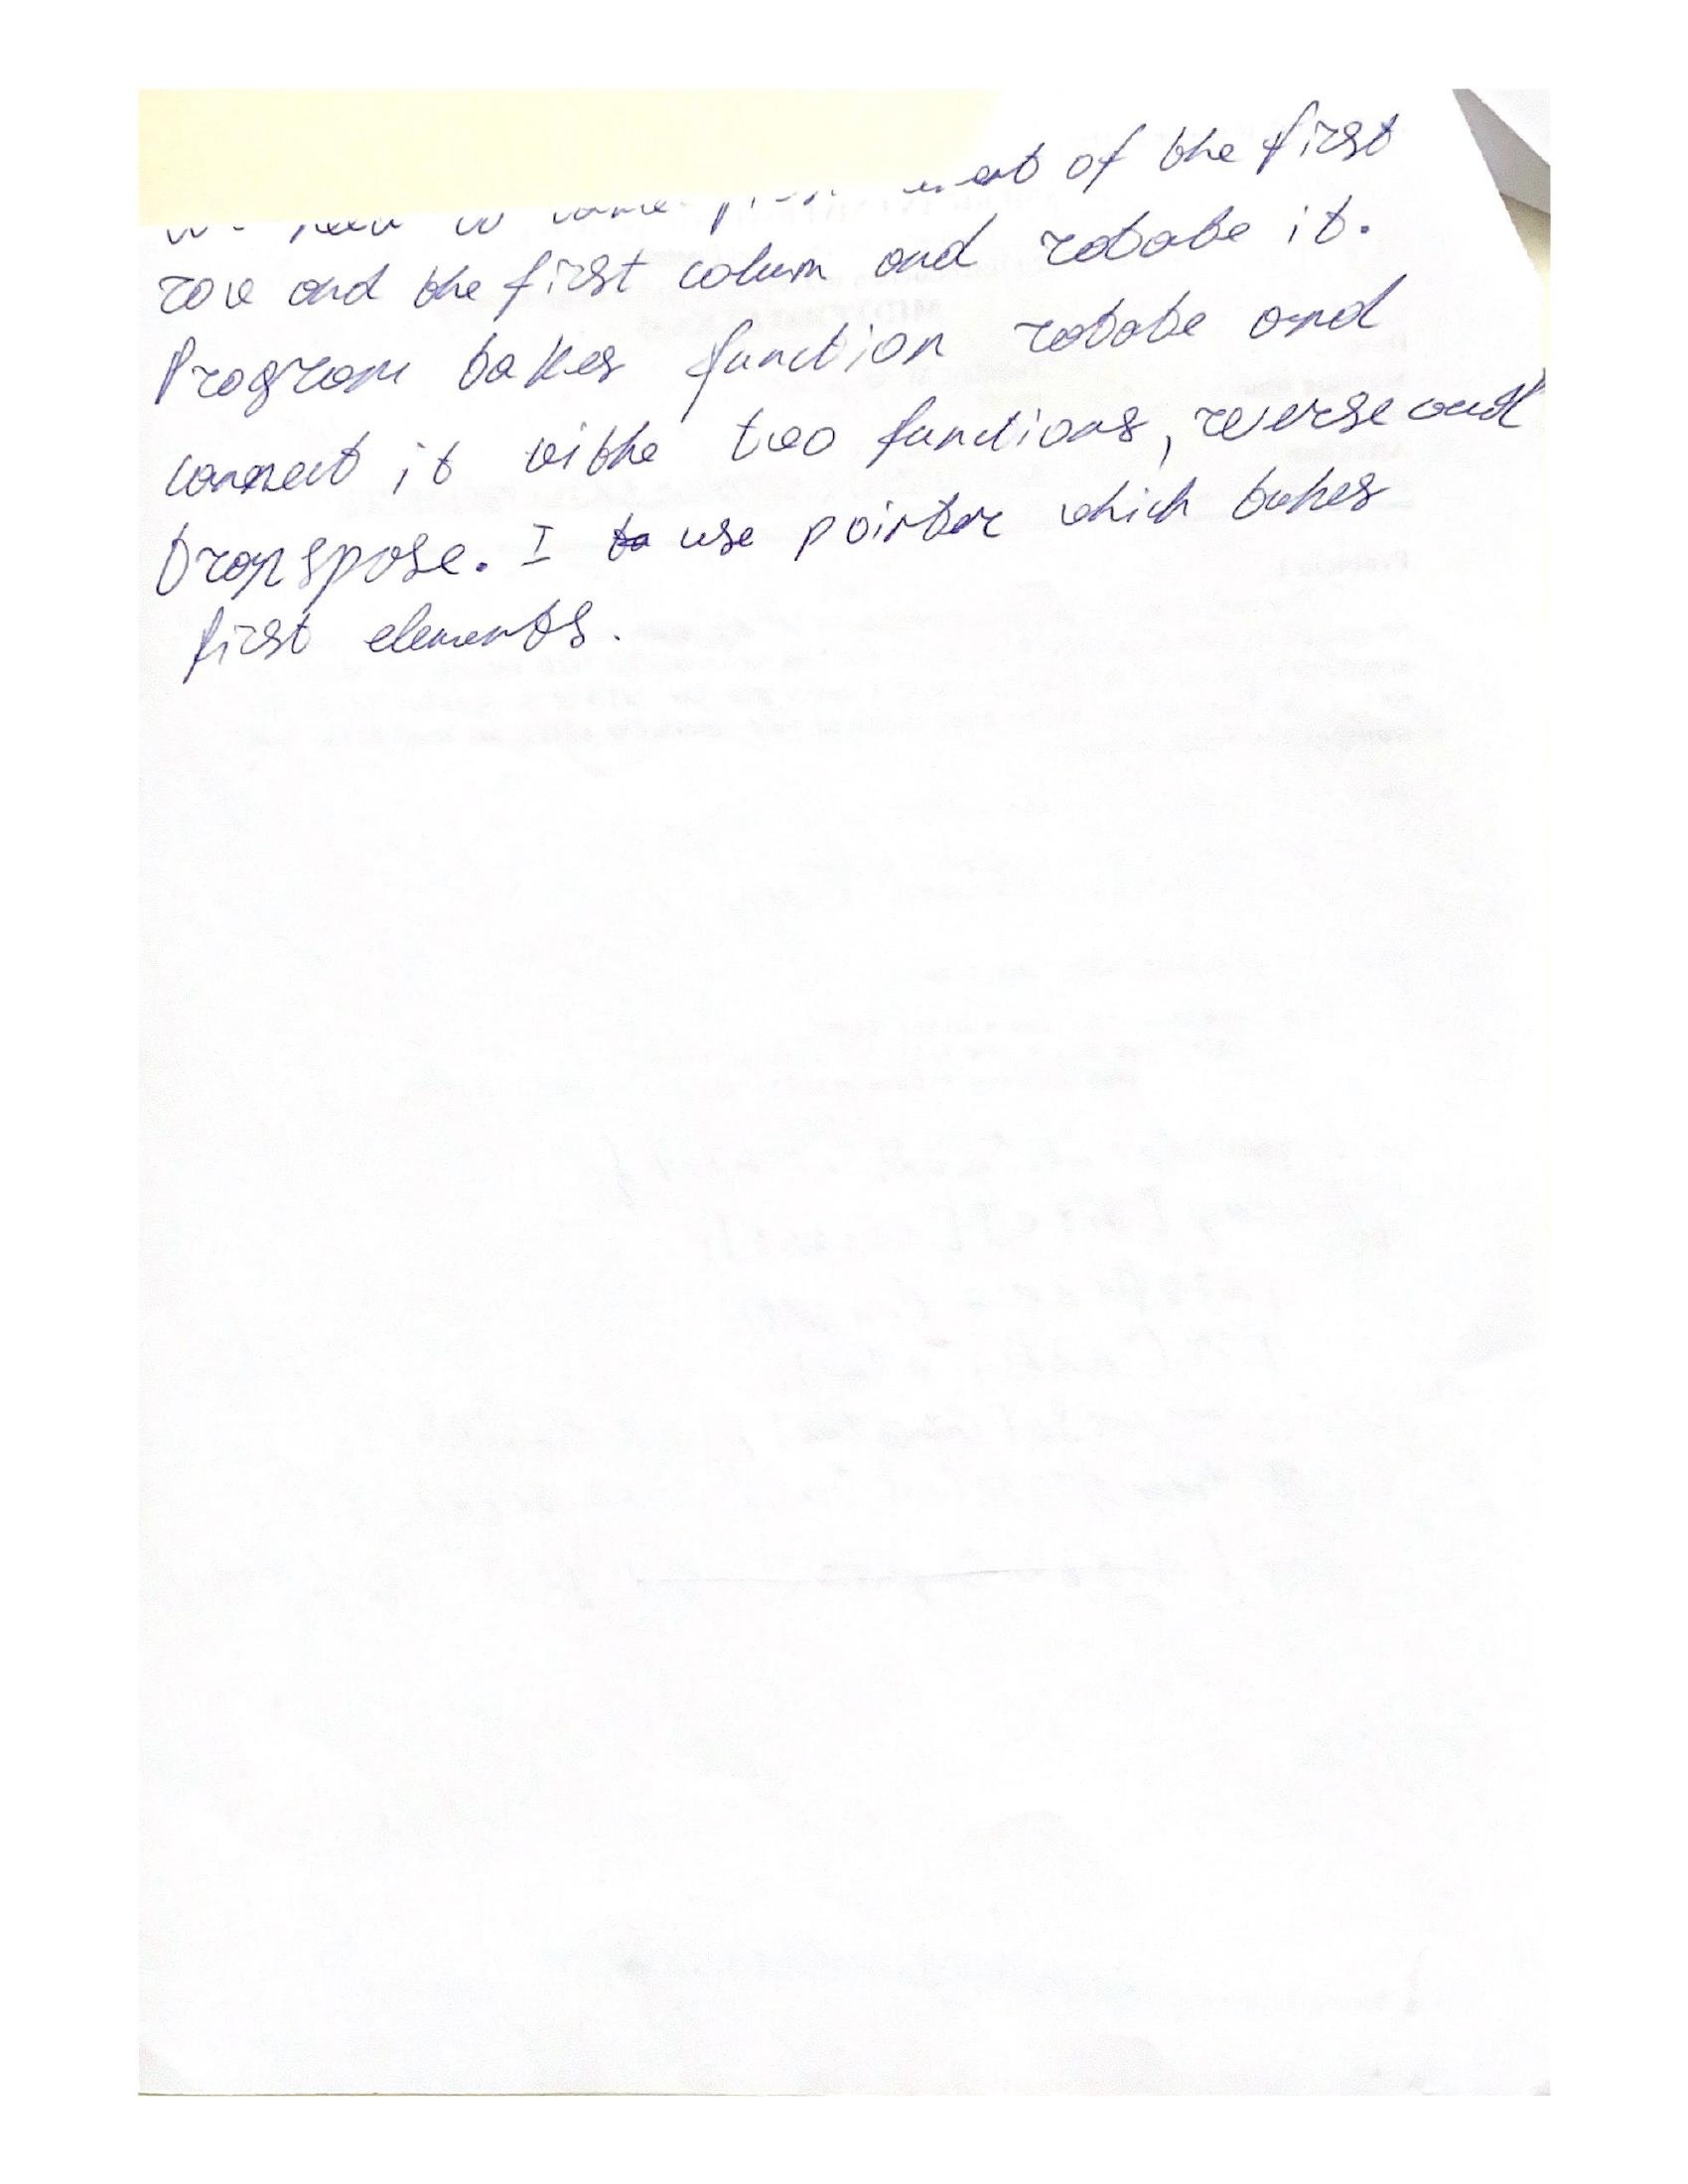 of the first
row and the first colum and rotate it.
Program takes function rotate and
connect it withe two functions, reverse and
transpose. I to use pointer which takes
first elements.